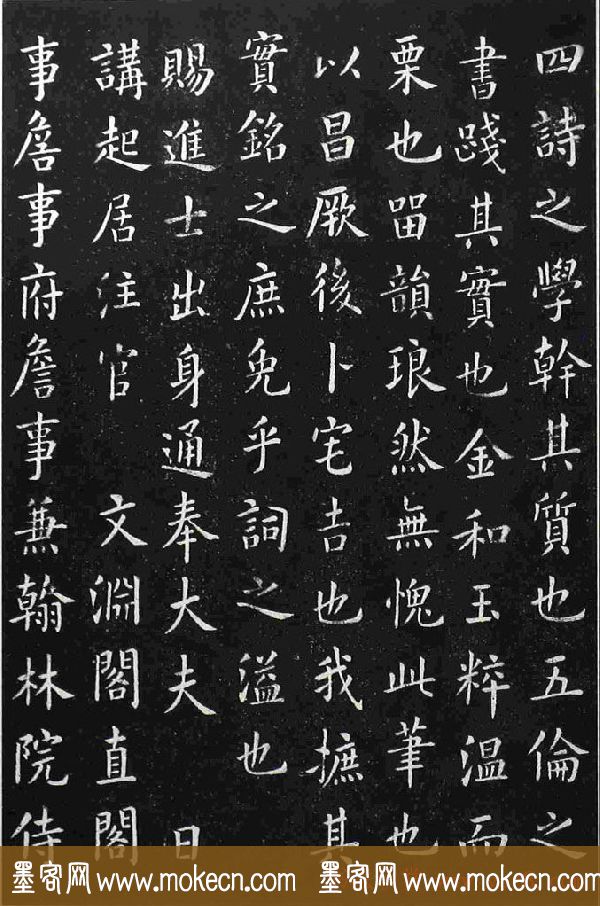 四詩之學幹其質也五倫之
書踐其實也金和玉粹温而
栗也畱韻琅然無愧此筆也
以昌厥後卜宅吉也我摭其
實銘之庶免乎詞之溢也
賜進士出身通奉大夫 日
講起居注官 文淵閣直閣
事詹事府詹事兼翰林院侍
墨客网 www.mokecn.com 墨客网 www.mokecn.com